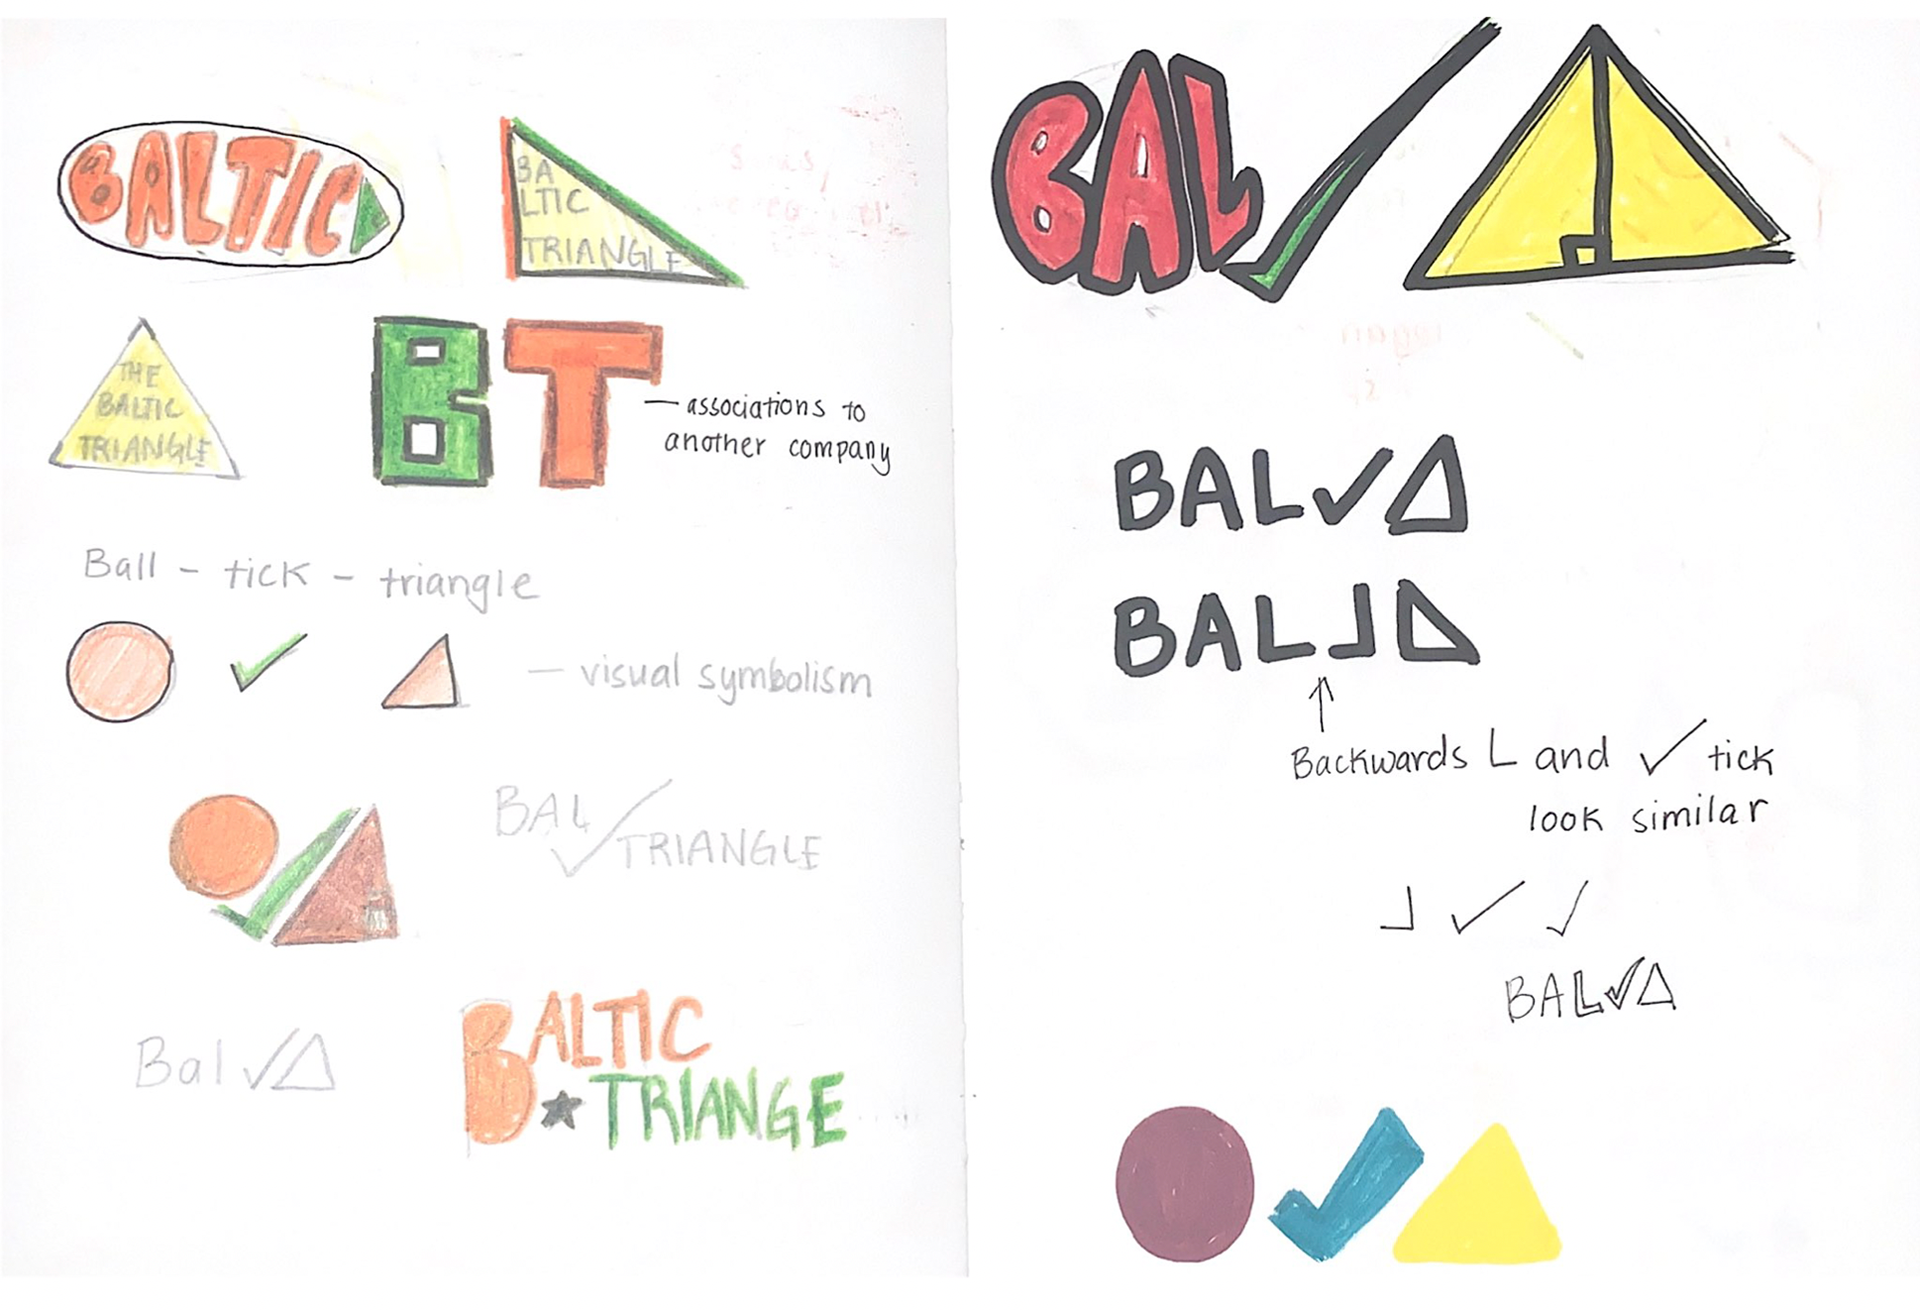 BALTIC
BA
LTIC
TRIANGLE
THE
BALTIC
TRIANGLE
BT
— associations to
another company
Ball - tick - triangle
— visual symbolism
BAL✓TRIANGLE
Bal✓△
BALTIC
★ TRIANGE
BAL✓△
BAL✓△
BAL⅃△
↑
Backwards L and ✓ tick
look similar
⅃ ✓ ✓
BAL✓△